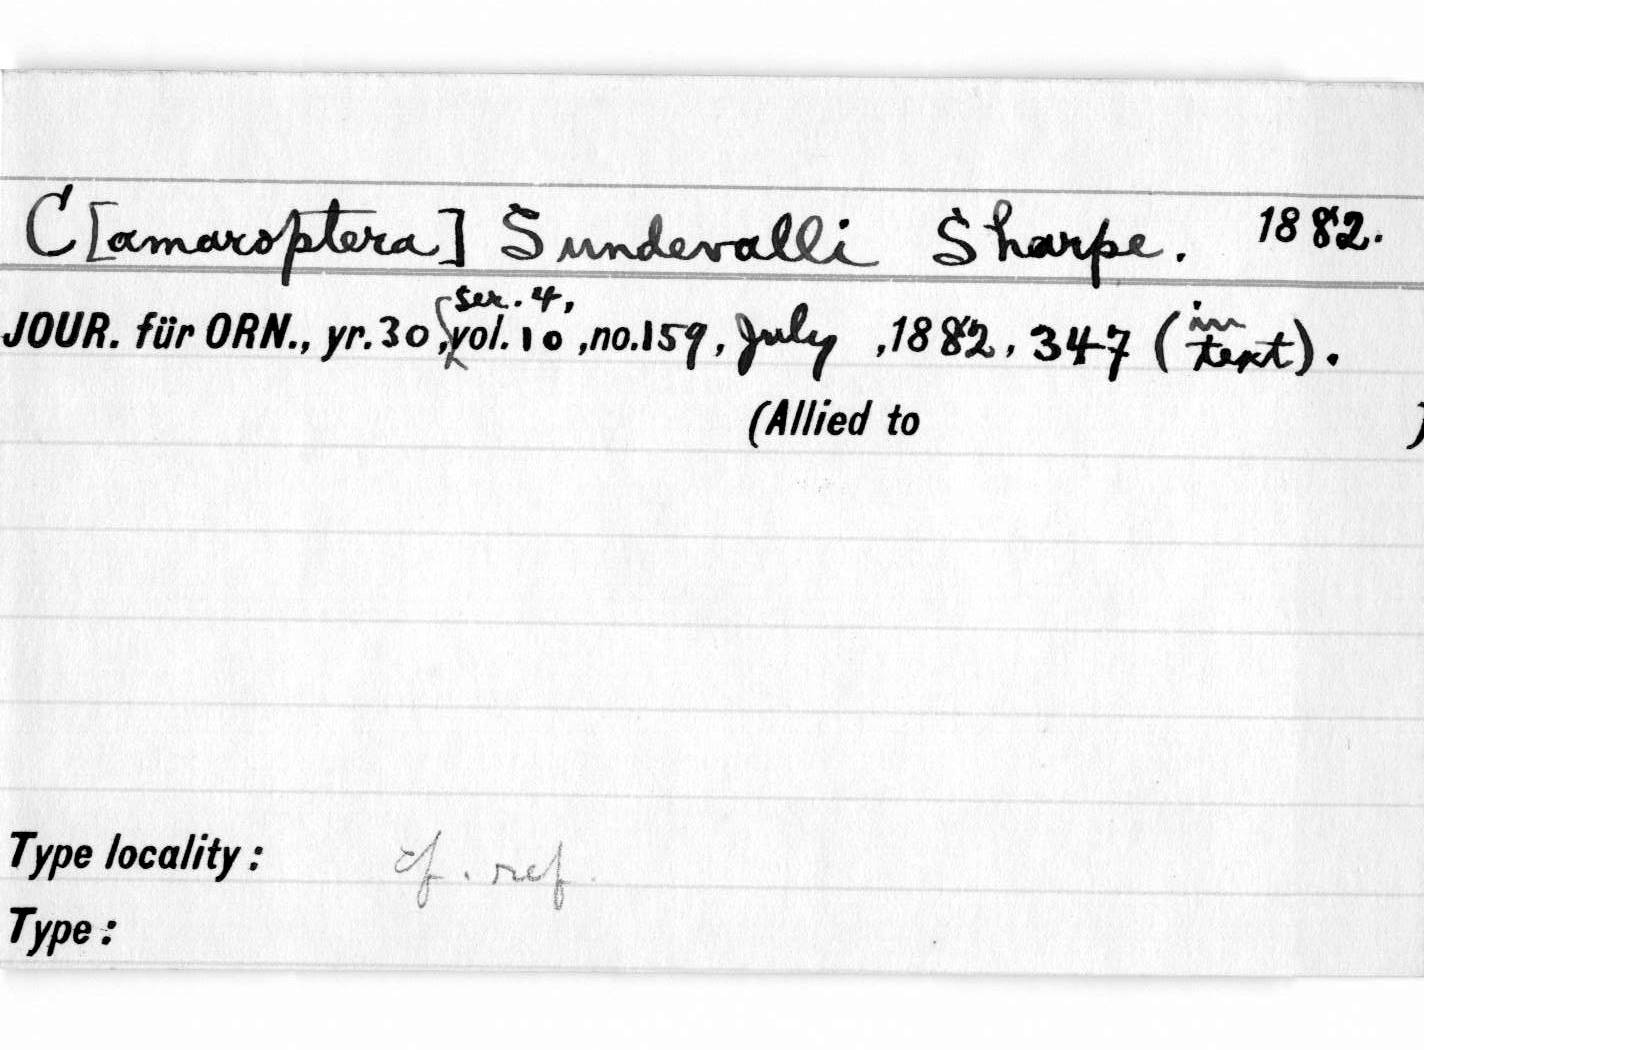 C[amaroptera] Sundevalli Sharpe. 1882.
JOUR. für ORN., yr. 30, ser. 4, vol. 10, no. 159, July, 1882, 347 (in text).
(Allied to )
Type locality: cf. ref.
Type: